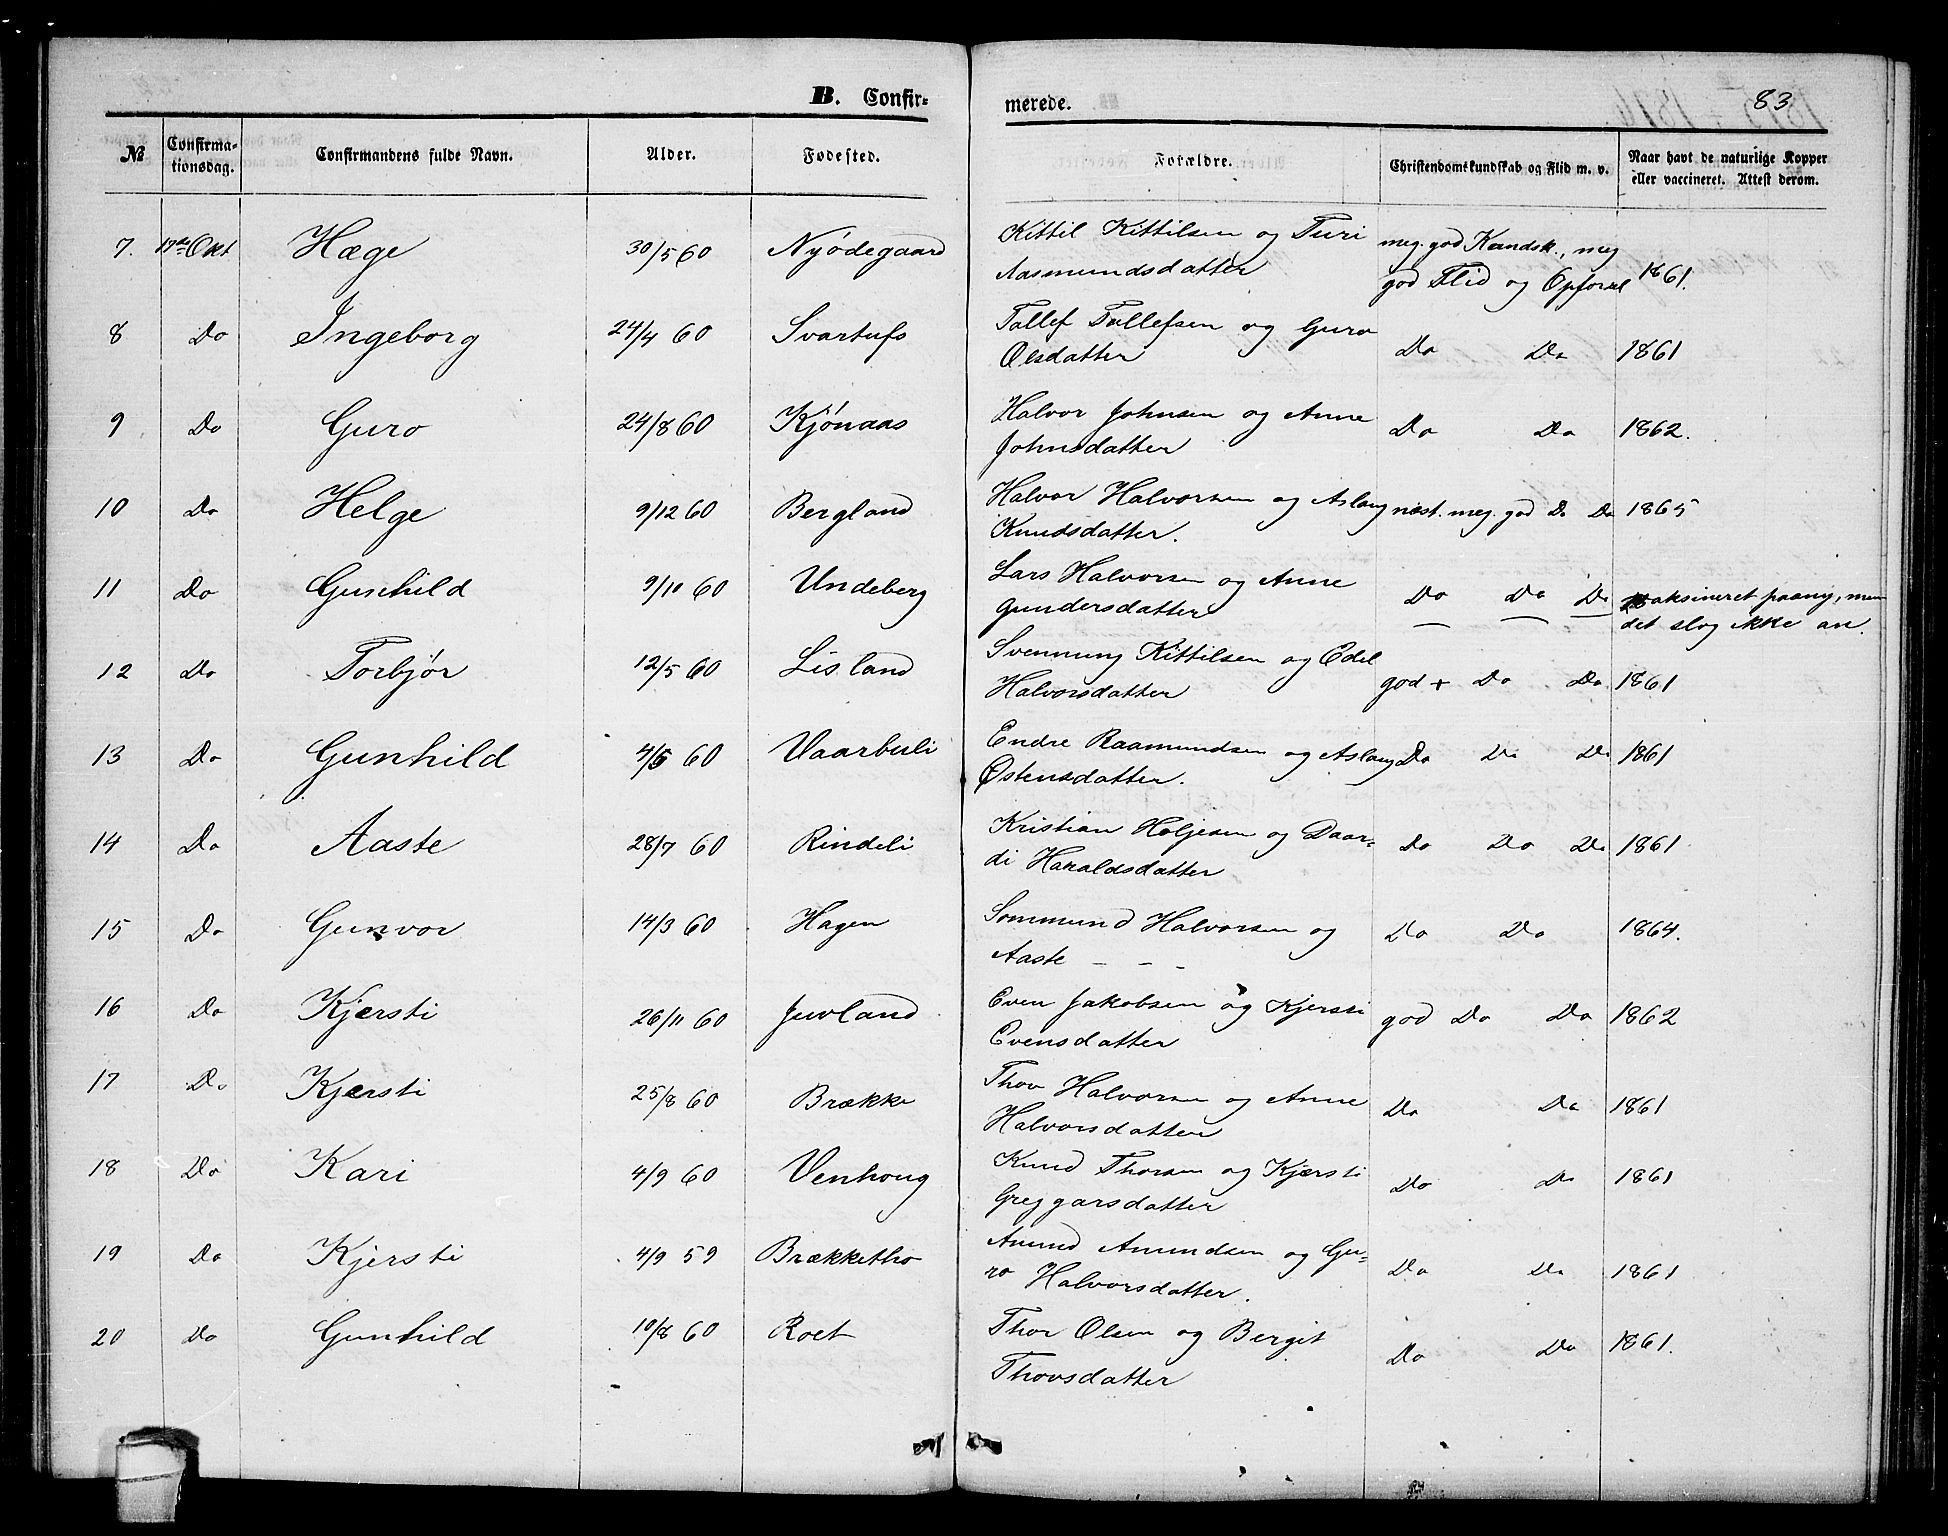 B. Confir-
merede.
83
№
Confirma-
tionsdag.
Confirmandens fulde Navn.
Alder.
Fødested.
Forældre.
Christendomskundskab og Flid m. v.
Naar havt de naturlige Kopper
eller vaccineret. Attest derom.
7. 17de Okt Hæge 30/5 60 Nyødegaard Kittil Kittilsen og Turi
Aasmundsdatter
meg. god Kundsk., meg
god Flid og Opførsel 1861.
8 Do Ingeborg 24/4 60 Svartufs Tollef Tollefsen og Guro
Olsdatter
Do Do 1861
9 Do Guro 24/8 60 Kjónaas Halvor Johnsen og Anne
Johnsdatter
Do Do 1862.
10 Do Helge 9/12 60 Bergland Halvor Halvorsen og Aslaug
Knudsdatter.
næst. meg. god Do Do 1865
11 Do Gunhild 9/10 60 Undeberg Lars Halvorsen og Anne
Gundersdatter
Do Do Do
vaksineret paany, men
det slog ikke an.
12 Do Torbjør 12/5 60 Lisland Svennung Kittilsen og Edel
Halvorsdatter
god + Do Do 1861
13 Do Gunhild 4/5 60 Vaarbuli Endre Raamundsen og Aslaug
Østensdatter.
Do Do Do 1861
14 Do Aaste 28/7 60 Rindeli Kristian Holjesen og Daar-
di Haraldsdatter
Do Do Do 1861
15 Do Gunvor 14/3 60 Hagen Sommund Halvorsen og
Aaste - - -
Do Do 1864.
16 Do Kjersti 26/11 60 Juvland Even Jakobsen og Kjersti
Evensdatter
god Do Do 1862
17 Do Kjersti 25/8 60 Brække Thov Halvorsen og Anne
Halvorsdatter
Do Do 1861
18 Do Kari 4/9 60 Venhoug Knud Thorsen og Kjersti
Greggarsdatter
Do Do 1861
19 Do Kjersti 4/9 59 Brækketho Anund Anundsen og Gu-
ro Halvorsdatter.
Do Do 1861
20 Do Gunhild 10/8 60 Roet Thor Olsen og Bergit
Thovsdatter
Do Do 1861.